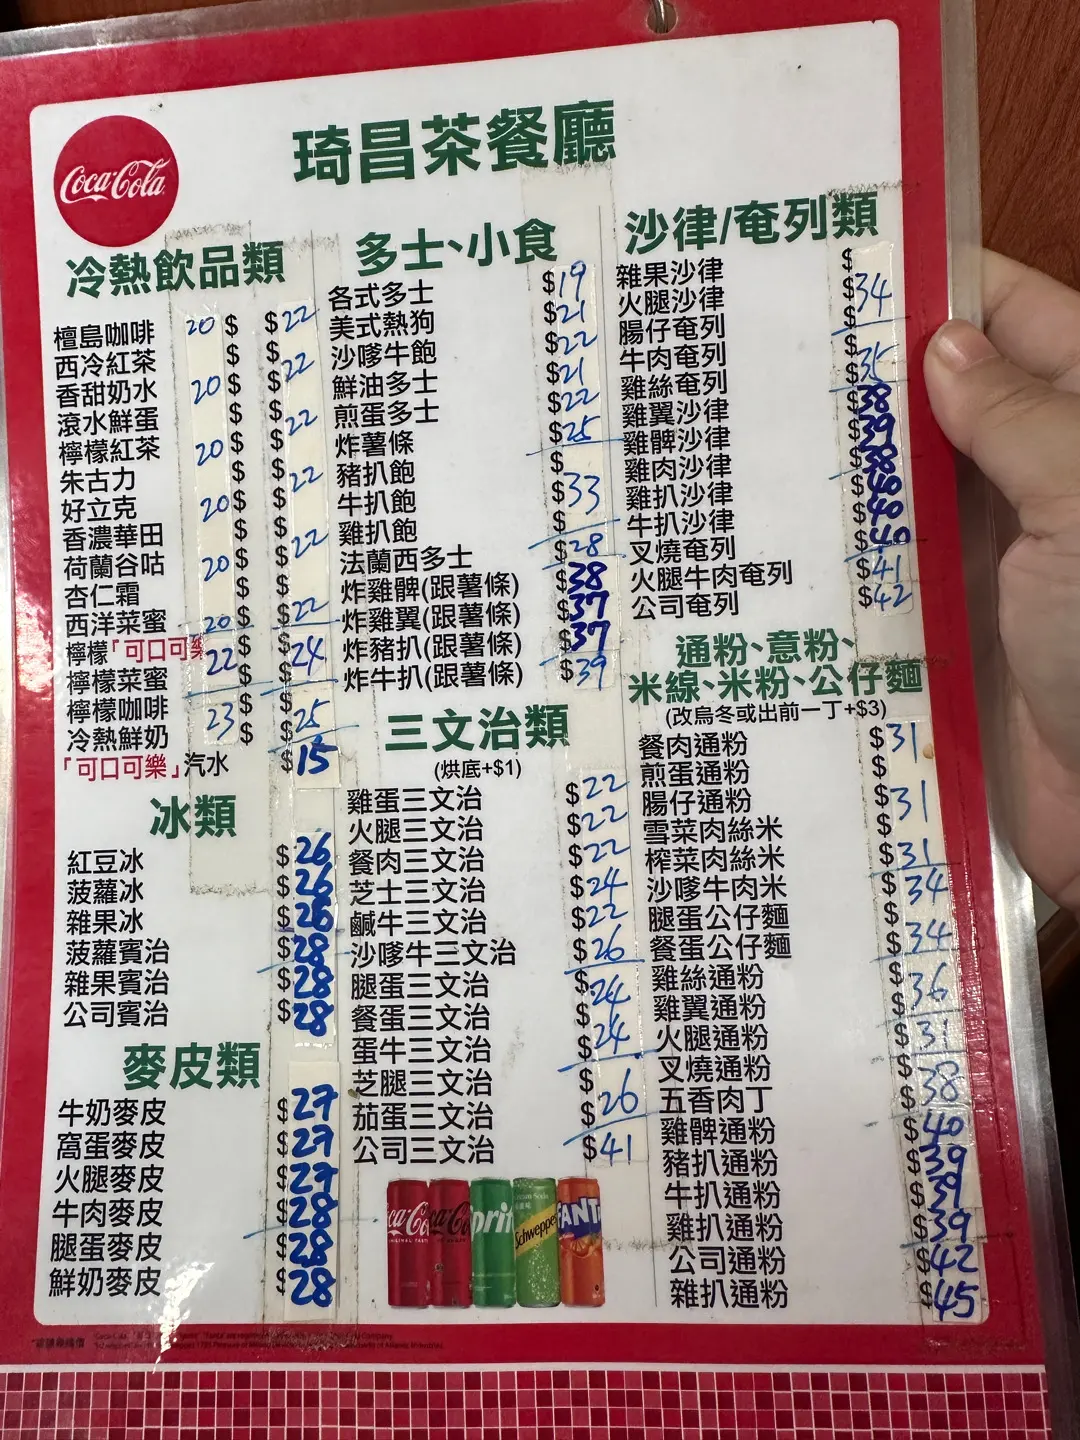 Coca-Cola
琦昌茶餐廳
冷熱飲品類
檀島咖啡 20 $ $22
西冷紅茶 $ $
香甜奶水 20 $ $22
滾水鮮蛋 $ $
檸檬紅茶 20 $ $22
朱古力 $ $
好立克 20 $ $22
香濃華田 $ $
荷蘭谷咕 20 $ $22
杏仁霜 $ $
西洋菜蜜 20 $ $22
檸檬「可口可樂 $ $
檸檬菜蜜 22 $ $24
檸檬咖啡 $ $
冷熱鮮奶 23 $ $25
「可口可樂」汽水 $15
冰類
紅豆冰 $26
菠蘿冰 $26
雜果冰 $26
菠蘿賓治 $28
雜果賓治 $28
公司賓治 $28
麥皮類
牛奶麥皮 $27
窩蛋麥皮 $27
火腿麥皮 $27
牛肉麥皮 $28
腿蛋麥皮 $28
鮮奶麥皮 $28
多士、小食
各式多士 $19
美式熱狗 $21
沙嗲牛飽 $22
鮮油多士 $21
煎蛋多士 $22
炸薯條 $25
豬扒飽 $
牛扒飽 $33
雞扒飽 $
法蘭西多士 $28
炸雞髀(跟薯條) $38
炸雞翼(跟薯條) $37
炸豬扒(跟薯條) $37
炸牛扒(跟薯條) $39
三文治類
(烘底+$1)
雞蛋三文治 $22
火腿三文治 $22
餐肉三文治 $22
芝士三文治 $24
鹹牛三文治 $22
沙嗲牛三文治 $26
腿蛋三文治 $
餐蛋三文治 $24
蛋牛三文治 $24
芝腿三文治 $
茄蛋三文治 $26
公司三文治 $41
沙律/奄列類
雜果沙律 $
火腿沙律 $34
腸仔奄列 $
牛肉奄列 $
雞絲奄列 $35
雞翼沙律 $38
雞髀沙律 $39
雞肉沙律 $38
雞扒沙律 $40
牛扒沙律 $40
叉燒奄列 $40
火腿牛肉奄列 $41
公司奄列 $42
通粉、意粉、
米線、米粉、公仔麵
(改烏冬或出前一丁+$3)
餐肉通粉 $31
煎蛋通粉 $
腸仔通粉 $31
雪菜肉絲米 $
榨菜肉絲米 $31
沙嗲牛肉米 $34
腿蛋公仔麵 $
餐蛋公仔麵 $34
雞絲通粉 $
雞翼通粉 $36
火腿通粉 $31
叉燒通粉 $
五香肉丁 $38
雞髀通粉 $40
豬扒通粉 $39
牛扒通粉 $39
雞扒通粉 $39
公司通粉 $42
雜扒通粉 $45
Schweppes
FANT